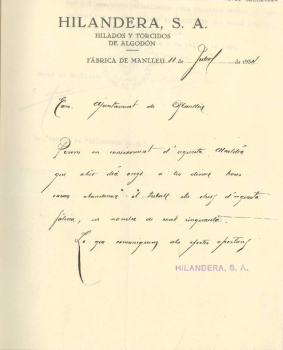 HILANDERA, S. A.
HILADOS Y TORCIDOS
DE ALGODÓN
FÁBRICA DE MANLLEU, 11 de Juliol de 193
Ajuntament de Manlleu
Posem en coneixement d'aquesta Alcaldia
que ahir dia onze a les dotze hores
varen abandonar el treball els obrers d'aquesta
fàbrica, en nombre de
Lo que comuniquem als efectes oportuns
HILANDERA, S. A.